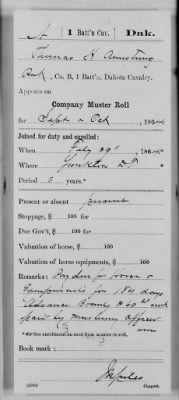 A | 1 Batt'n Cav. | Dak.
Thomas H Armstrong
Pvt, Co. B, 1 Batt'n, Dakota Cavalry.
Appears on
Company Muster Roll
for Sept & Oct, 186
Joined for duty and enrolled:
When July 29, 186
Where Yankton D.T.
Period 3 years.*
Present or absent present
Stoppage, $ 100 for
Due Gov't, $ 100 for
Valuation of horse, $ 100
Valuation of horse equipments, $ 100
Remarks: Pay due for Horse &
Equipments for 184 days
Advance Bounty $60 not
paid by mustering officer
Book mark:
Copyist.